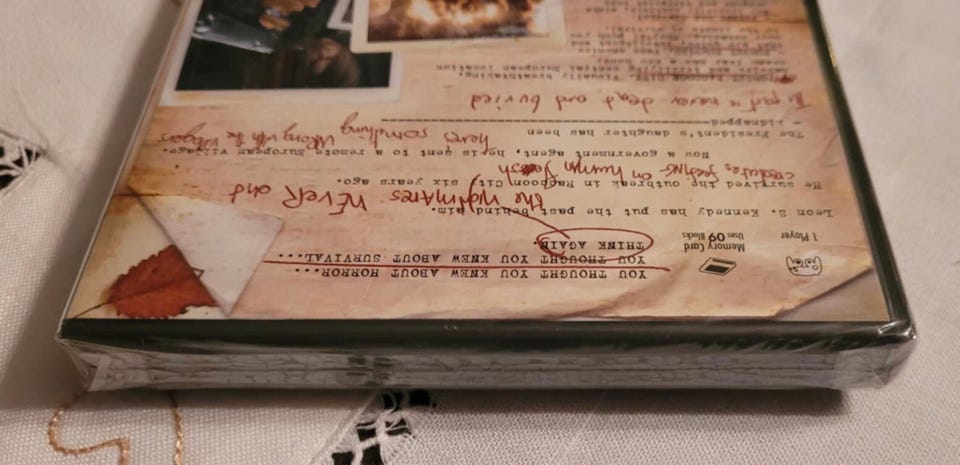 1 Player
Memory Card
Uses 09 Blocks
YOU THOUGHT YOU KNEW ABOUT HORROR...
YOU THOUGHT YOU KNEW ABOUT SURVIVAL...
THINK AGAIN.
Leon S. Kennedy has put the past behind him.
the nightmares NEVER end
He survived the outbreak in Raccoon City, six years ago.
creatures feeding on human flesh
Now a government agent, he is sent to a remote European village.
heres something wrong with the villagers
The President's daughter has been
- kidnapped.
The past is never dead and buried
visually breathtaking.
European location